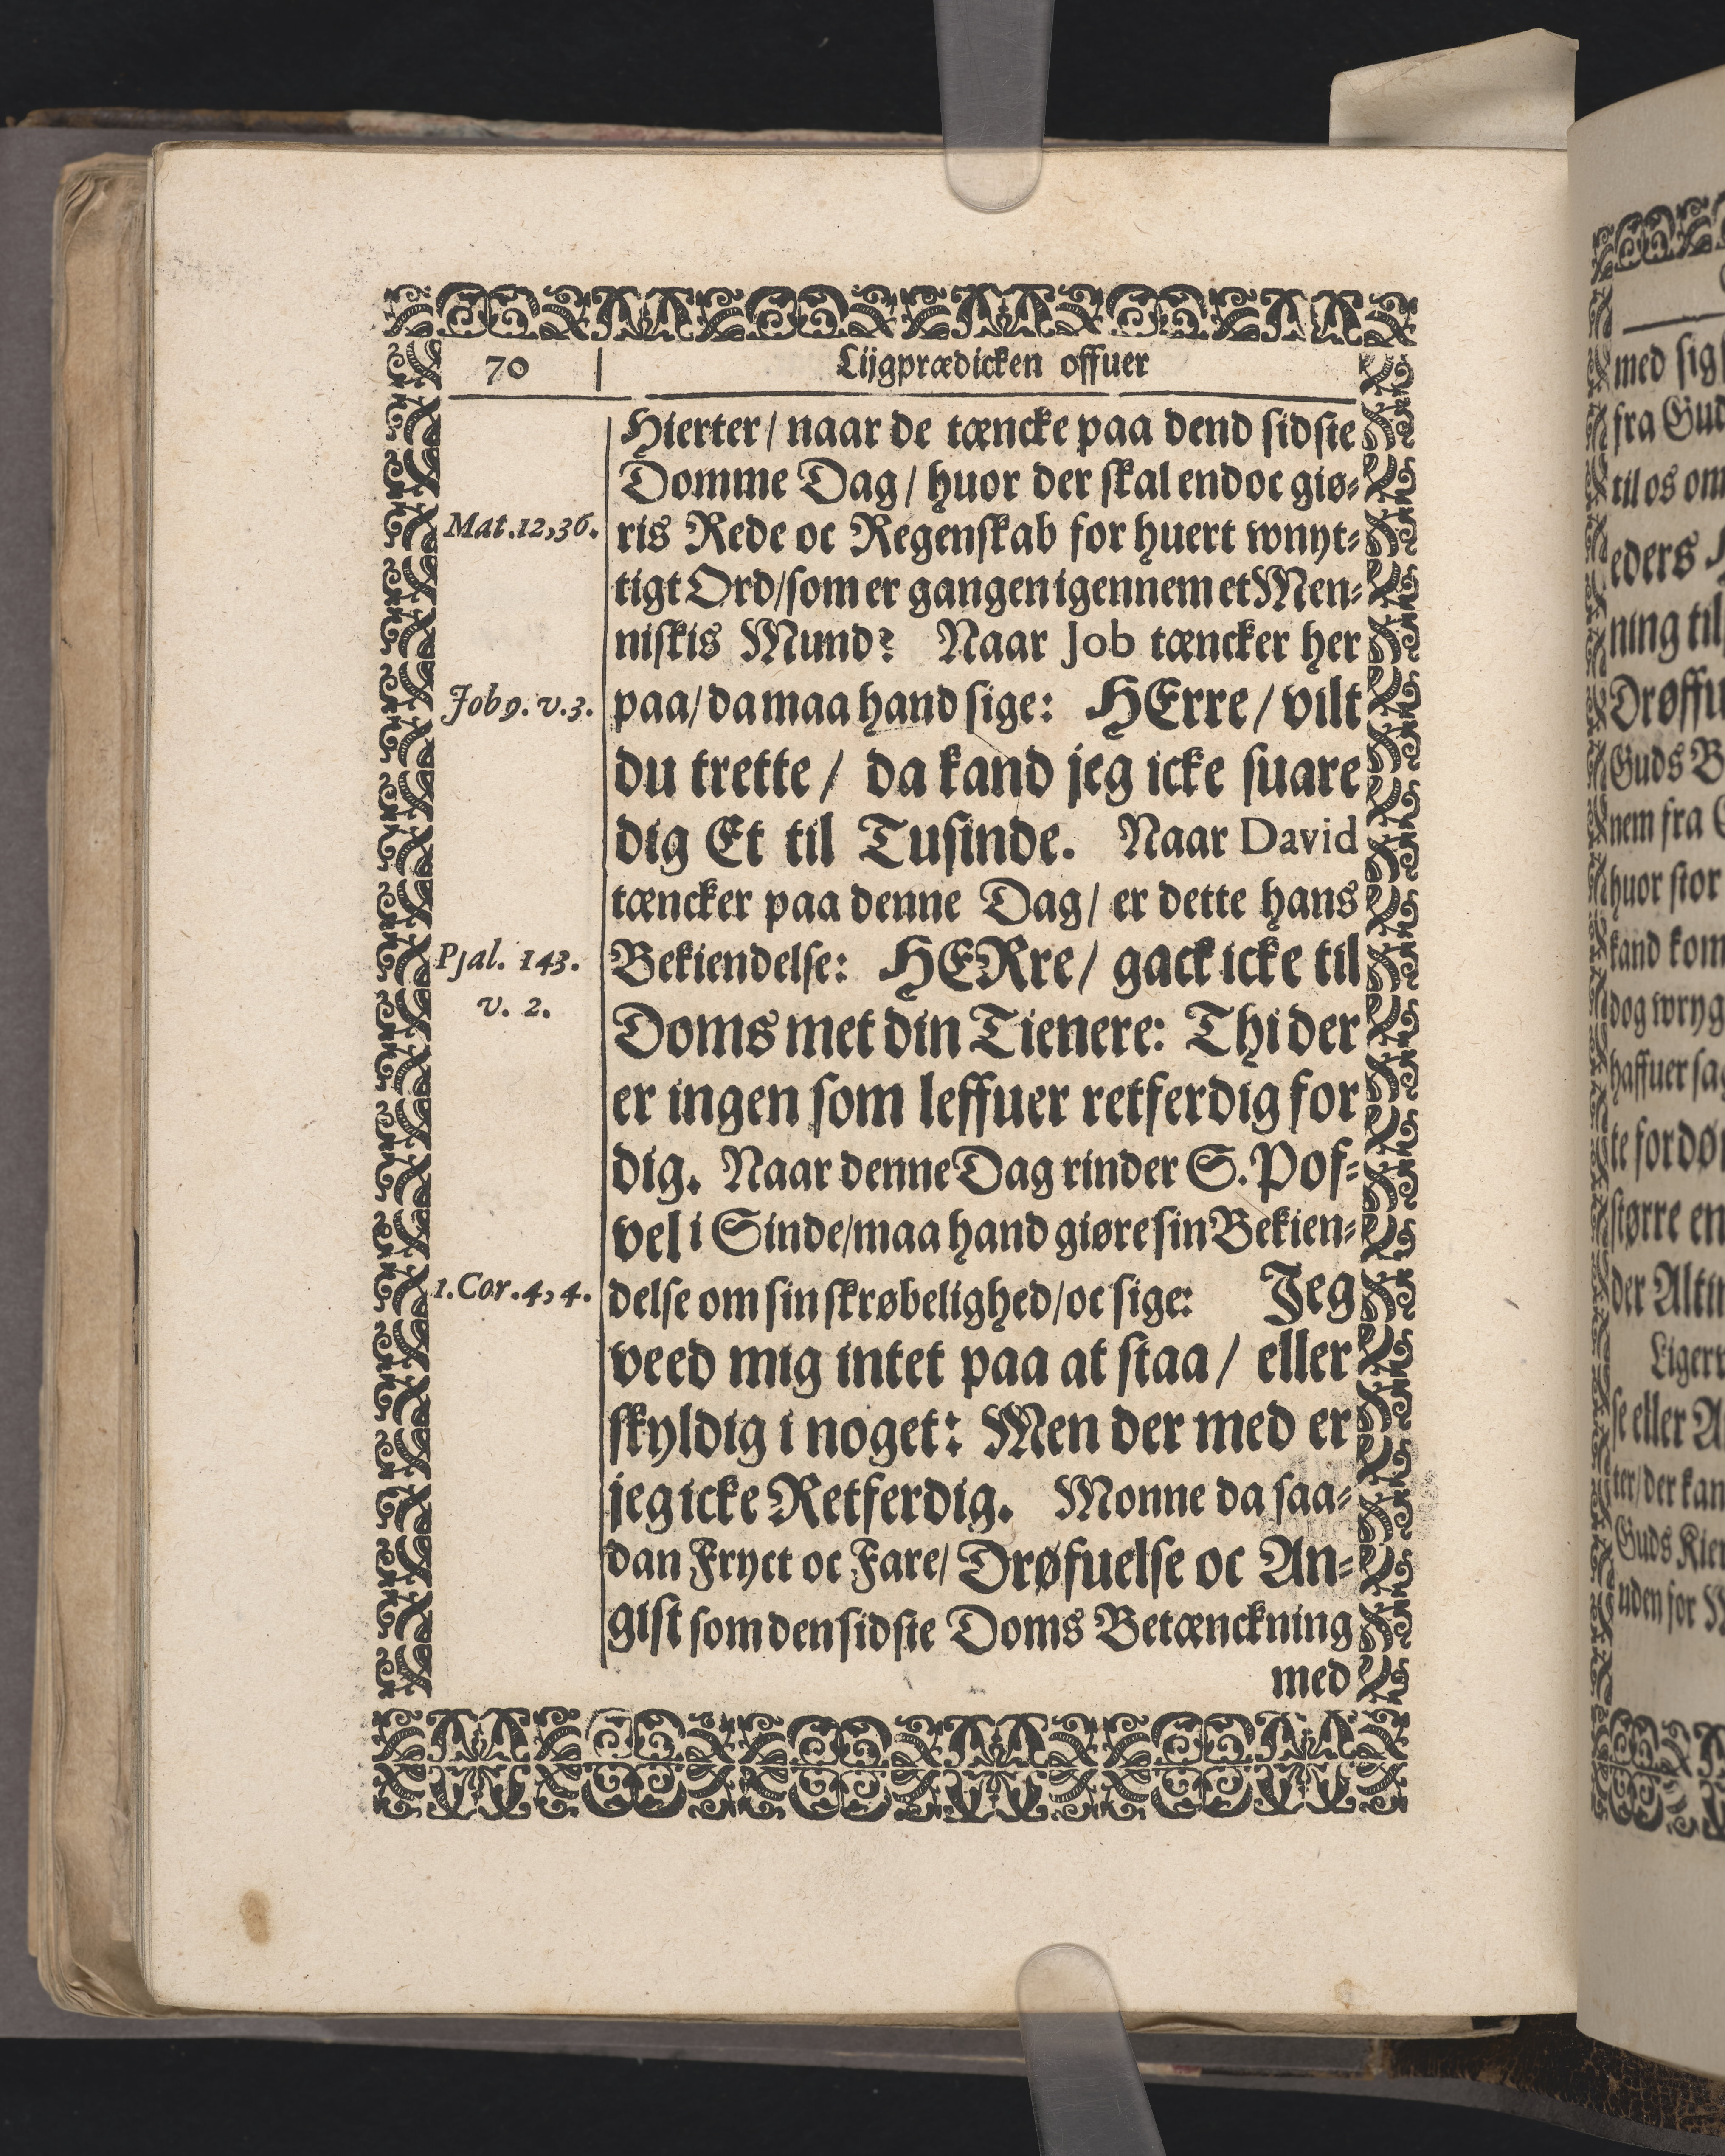 70
Lijgprædicken offuer
Hierter/ naar de tæncke paa dend sidste
Domme Dag/ huor der skal endoc giø-
Mat.12,36.
ris Rede oc Regenskab for huert wnyt-
tigt Ord/som er gangen igennem et Men-
niskis Mund? Naar Job tæncker her
Job 9. v.3.
paa/ da maa hand sige: HErre/ vilt
du trette/ da kand jeg icke suare
dig Et til Tusinde. Naar David
tæncker paa denne Dag/ er dette hans
Psal. 143.
v. 2.
Bekiendelse: HERre/ gack icke til
Doms met din Tienere: Thi der
er ingen som leffuer retferdig for
dig. Naar denne Dag rinder S. Pof-
vel i Sinde/maa hand giøre sin Bekien-
1.Cor.4,4.
delse om sin skrøbelighed/oc sige: Jeg
veed mig intet paa at staa/ eller
skyldig i noget: Men der med er
jeg icke Retferdig. Monne da saa-
dan Fryct oc Fare/ Drøfuelse oc An-
gist som den sidste Doms Betænckning
med
med sig
fra Gud
til os om
eders
ning til
Drøffu
Guds B
nem fra
huor stor
kand kom
dog wryg
haffuer sag
te fordøm
større en
der Altin
Ligerv
se eller A
ter/ der kan
Guds Kier
uden for